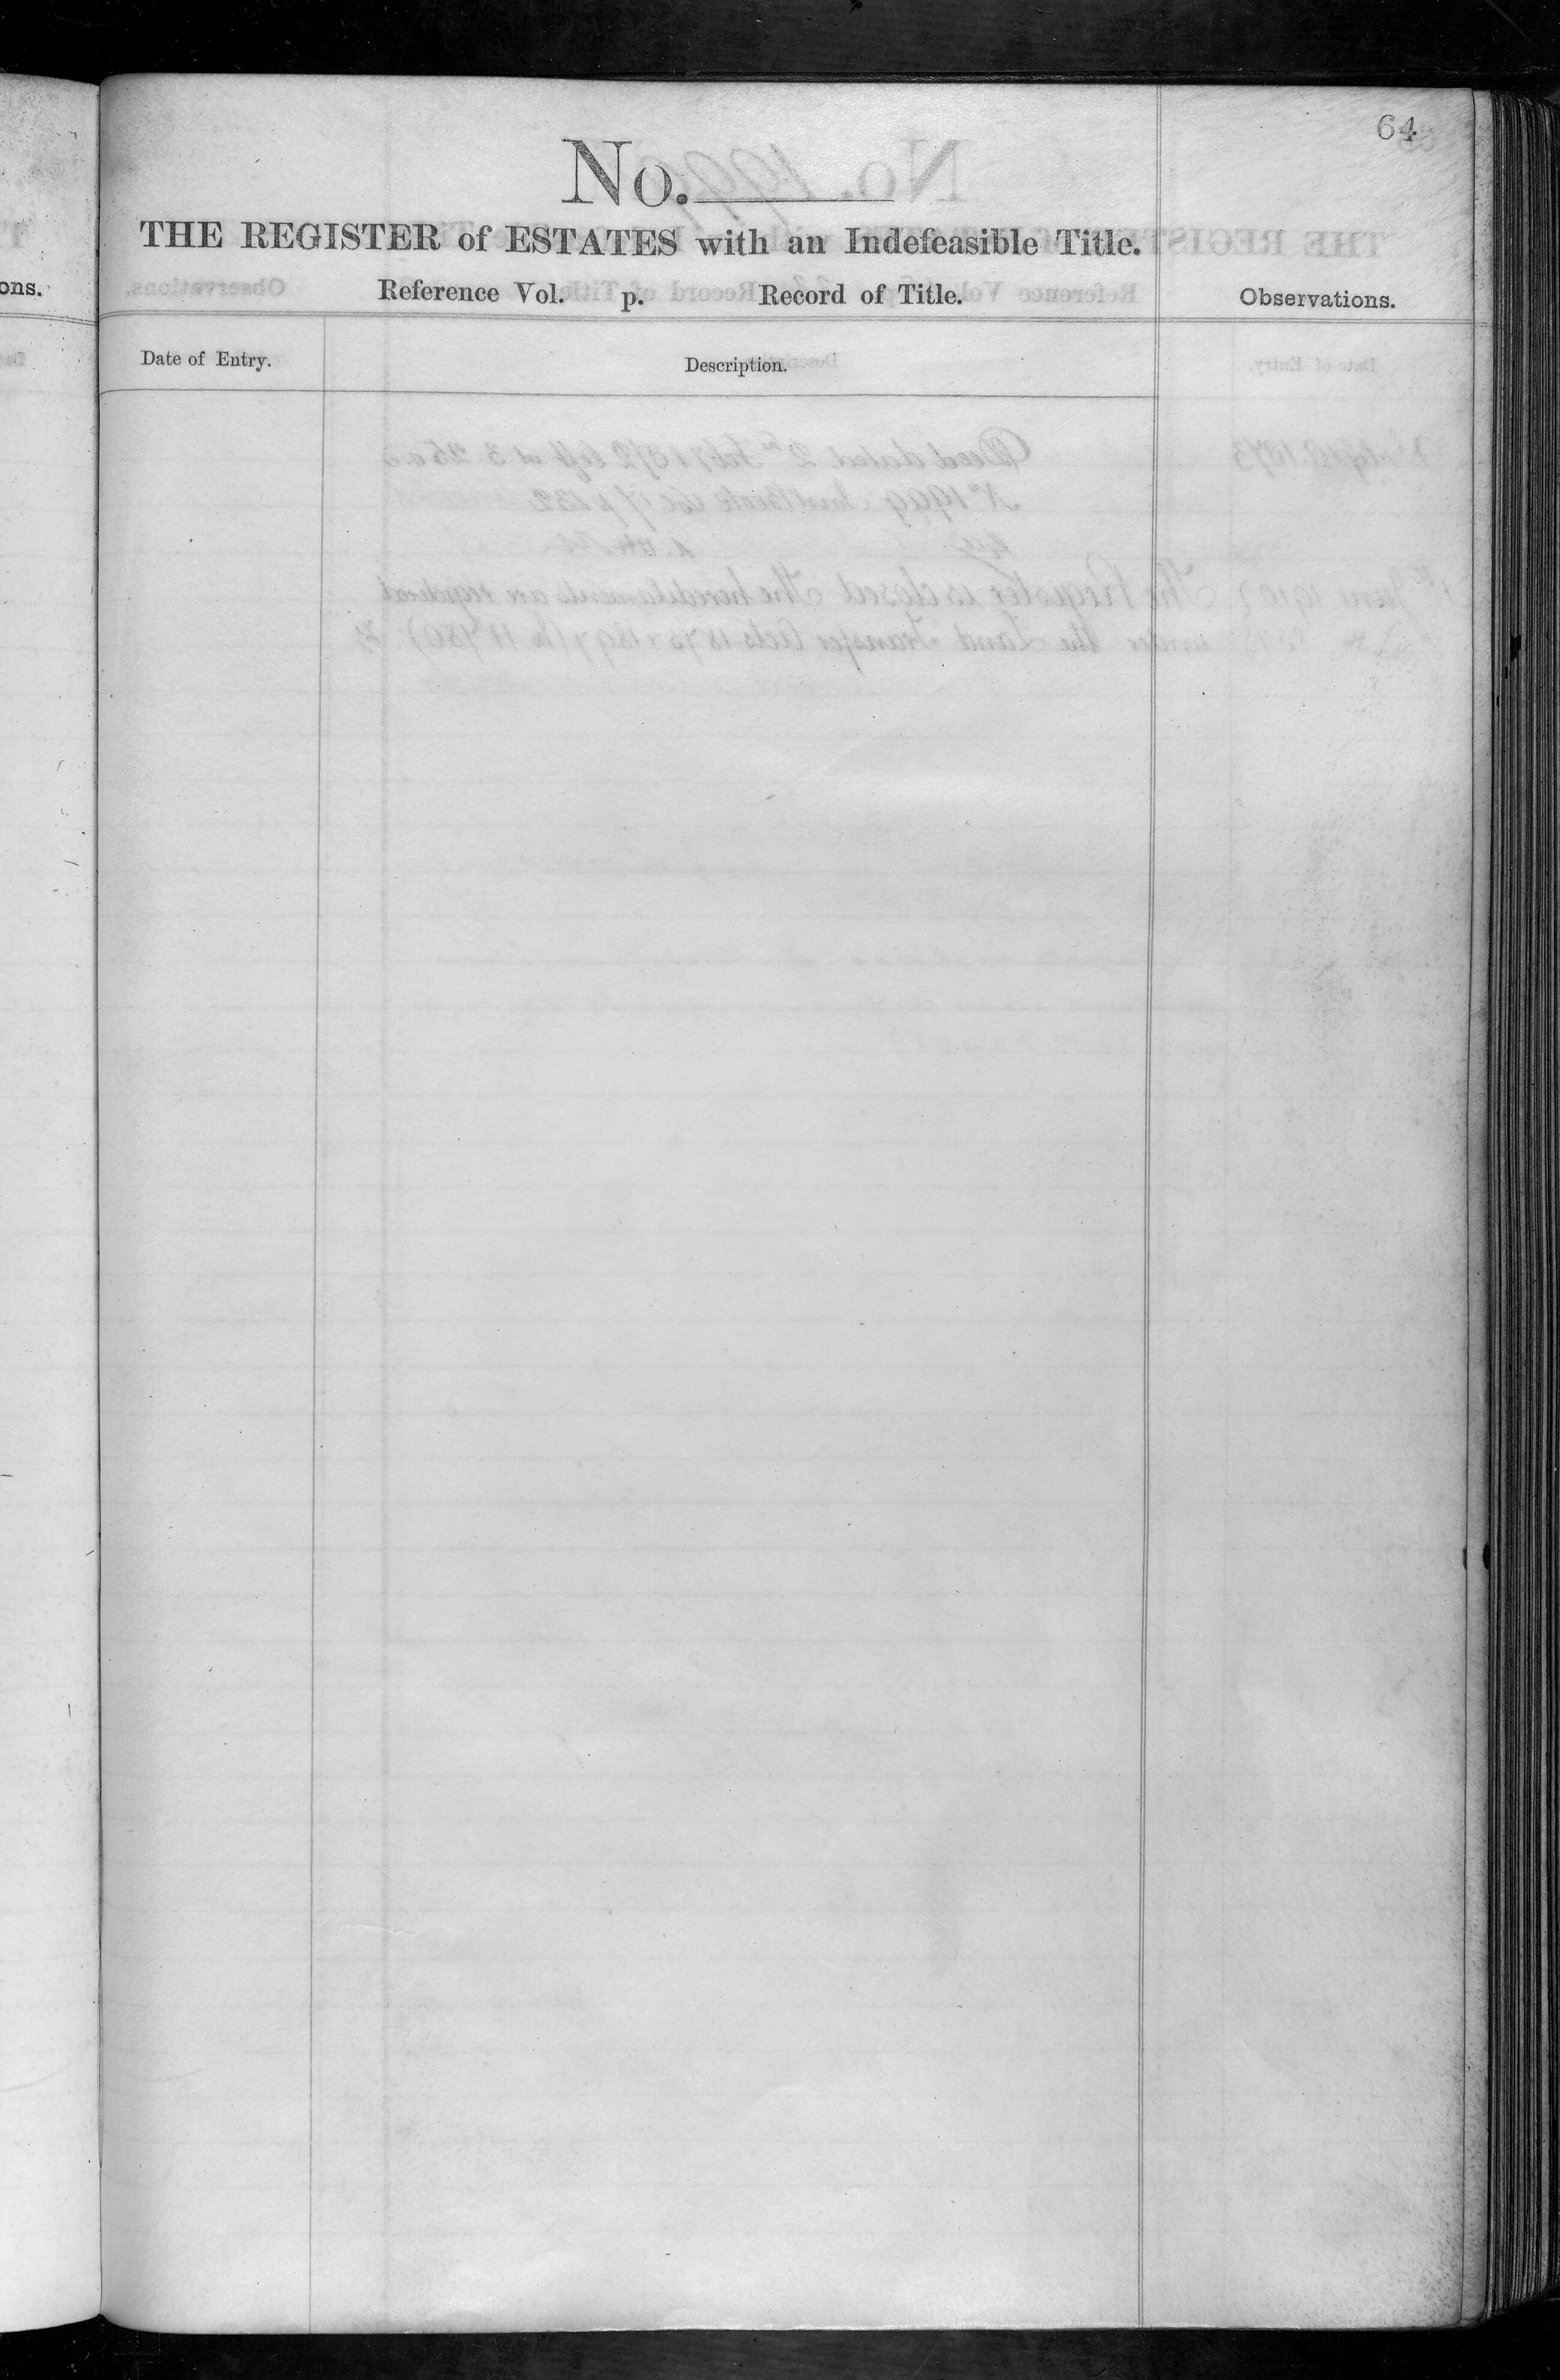 64
No.
THE REGISTER of ESTATES with an Indefeasible Title.
ons.
Reference Vol. p. Record of Title.
Observations.
Date of Entry.
Description.